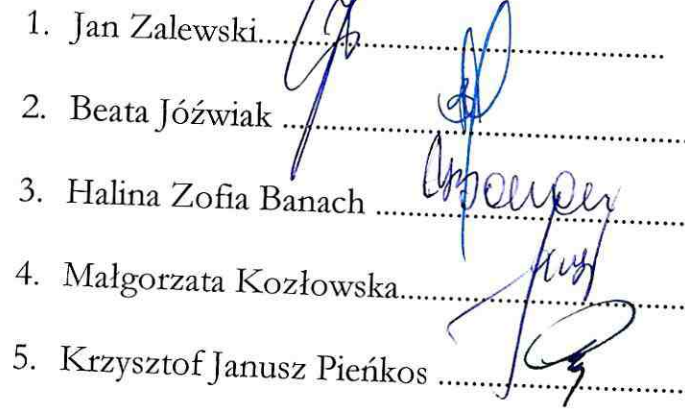 1. Jan Zalewski
2. Beata Jóźwiak
3. Halina Zofia Banach
4. Małgorzata Kozłowska
5. Krzysztof Janusz Pieńkos